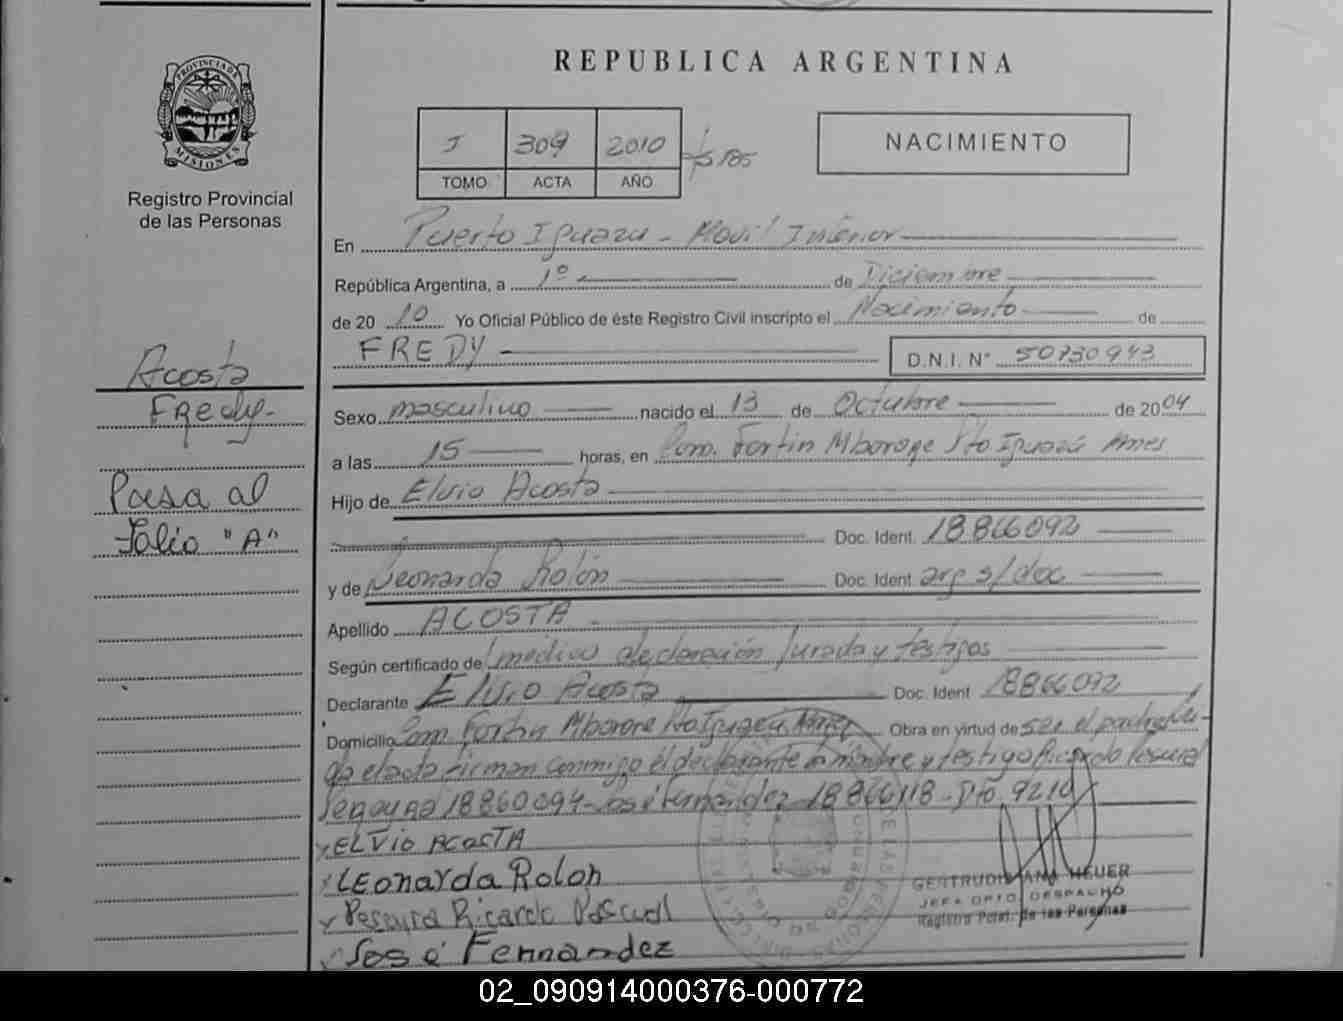 REPUBLICA ARGENTINA
PROVINCIA DE
MISIONES
Registro Provincial
de las Personas
I 309 2010
TOMO ACTA AÑO
NACIMIENTO
En Puerto Iguazu - Movil Interior
República Argentina, a 1º de Diciembre
de 20 10 Yo Oficial Público de éste Registro Civil inscripto el Nacimiento de
FREDY D.N.I. Nº 50730943
Acosta
Fredy.-
Pasa al
Folio "A"
Sexo masculino nacido el 13 de Octubre de 2004
a las 15 horas, en Com. Fortin Mborore Pto Iguazú Mnes
Hijo de Elvio Acosta
Doc. Ident. 18866092
y de Leonarda Rolón Doc. Ident arg s/doc
Apellido ACOSTA
Según certificado de medico declaración Jurada y testigos
Declarante Elvio Acosta Doc. Ident 18866092
Domicilio Com Fortin Mborore Pto Iguazu Mnes Obra en virtud de ser el padre Lei-
da el acta firman conmigo el declarante la madre y testigo Ricardo Pascual
18860094- José Fernandez 18866118- Dto. 9210
ELVIO ACOSTA
LEonarda Rolon
Ricardo Pascual
José Fernandez
GERTRUDIS ANA HEUER
JEFA DPTO. DESPACHO
Registro Pcial. de las Personas
02_090914000376-000772